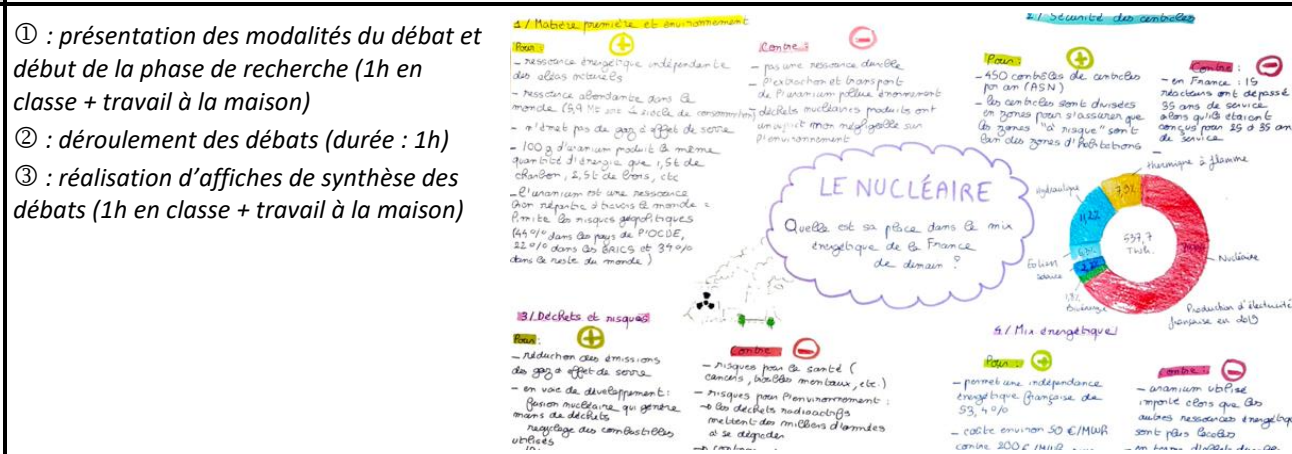 ① : présentation des modalités du débat et
début de la phase de recherche (1h en
classe + travail à la maison)
② : déroulement des débats (durée : 1h)
③ : réalisation d’affiches de synthèse des
débats (1h en classe + travail à la maison)
1/ Matière première et environnement
Pour :
- ressource énergétique indépendante
des aléas
- ressource abondante dans le
monde
- n'émet pas de gaz à effet de serre
- 100 g d'uranium produit la même
quantité d'énergie que 1,5t de
charbon, 2,5t de bois, etc
- l'uranium est une ressource
bien répartie à travers le monde :
limite les risques géopolitiques
(44% dans les pays de l'OCDE,
22% dans les BRICS et 34%
dans le reste du monde)
Contre :
- pas une ressource durable
- l'extraction et transport
de l'uranium pollue énormément
- déchets nucléaires produits ont
un non négligeable sur
l'environnement
2/ Sécurité des centrales
Pour :
- 450 contrôles de centrales
par an (ASN)
- les centrales sont divisées
en zones pour s'assurer que
les zones "à risque" sont
loin des zones d'habitations
Contre :
- en France : 19
réacteurs ont dépassé
35 ans de service
alors qu'ils étaient
conçus pour 25 à 35 ans
de service
LE NUCLÉAIRE
Quelle est sa place dans le mix
énergétique de la France
de demain ?
thermique à flamme
7,9%
Hydraulique
11,2%
Eolien
Solaire
Bioénergie
537,7
TWh.
Nucléaire
Production d'électricité
française en 2019
3/ Déchets et risques
Pour :
- réduction des émissions
des gaz à effet de serre
- en voie de développement :
fusion nucléaire qui génère
moins de déchets
recyclage des combustibles
utilisés
Contre :
- risques pour la santé (
cancers, troubles mentaux, etc.)
- risques pour l'environnement :
→ les déchets radioactifs
mettent des milliers d'années
à se dégrader
4/ Mix énergétique
Pour :
- permet une indépendance
énergétique française de
53,4%
- coûte environ 50 €/MWh
contre 200 €/MWh
Contre :
- uranium utilisé
importé alors que les
autres ressources
sont plus locales
- en terme